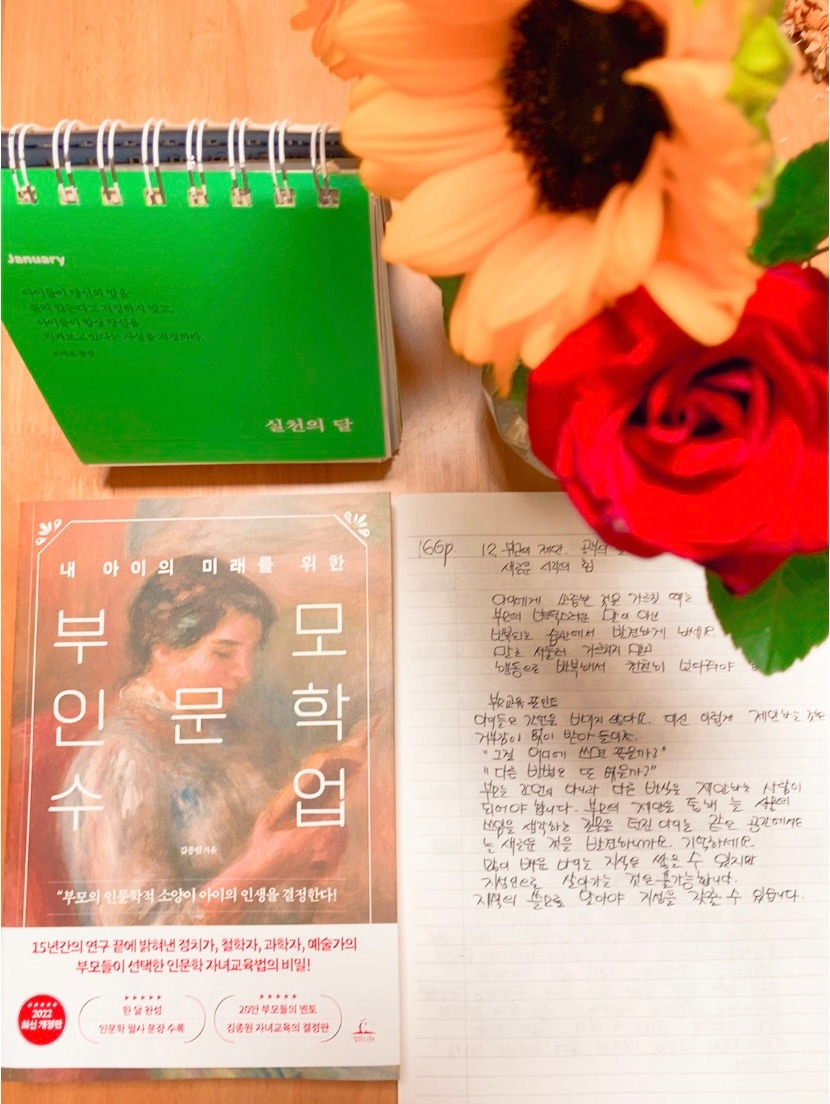 January
아이들이 당신의 말을
듣지 않는다고 걱정하지 말고,
아이들이 항상 당신을
지켜보고 있다는 사실을 걱정하라.
로버트 풀검
실천의 달
내 아이의 미래를 위한
부모
인문학
수업
김종원 지음
“부모의 인문학적 소양이 아이의 인생을 결정한다!
15년간의 연구 끝에 밝혀낸 정치가, 철학자, 과학자, 예술가의
부모들이 선택한 인문학 자녀교육법의 비밀!
2022
최신 개정판
한 달 완성
인문학 필사 문장 수록
20만 부모들의 멘토
김종원 자녀교육의 결정판
166p. 12. 부모의 제안, 공간의
새로운 시각의 힘
아이에게 소중한 것을 가르칠 때는
부모의 변덕스러운 말이 아닌
반복되는 습관에서 발견하게 하세요
말로 서둘러 가르치지 말고
행동으로 반복해서 천천히 보여줘야
부모교육 포인트
아이들은 간섭을 바라지 않아요. 대신 이렇게 제안하는 것은
거부감이 없이 받아 들이죠.
"그걸 어디에 쓰면 좋을까?"
"다른 방법은 또 뭐있을까?"
부모는 조언이 아니라 다른 방식을 제안하는 사람이
되어야 합니다. 부모의 제안을 통해 늘 사물의
쓰임을 생각하는 질문을 던진 아이는 같은 공간에서도
늘 새로운 것을 발견하니까요. 기억하세요.
많이 배운 아이는 지식은 쌓을 수 있지만
지성인으로 살아가는 것은 불가능합니다.
지식의 쓸모를 알아야 지성을 갖출 수 있습니다.